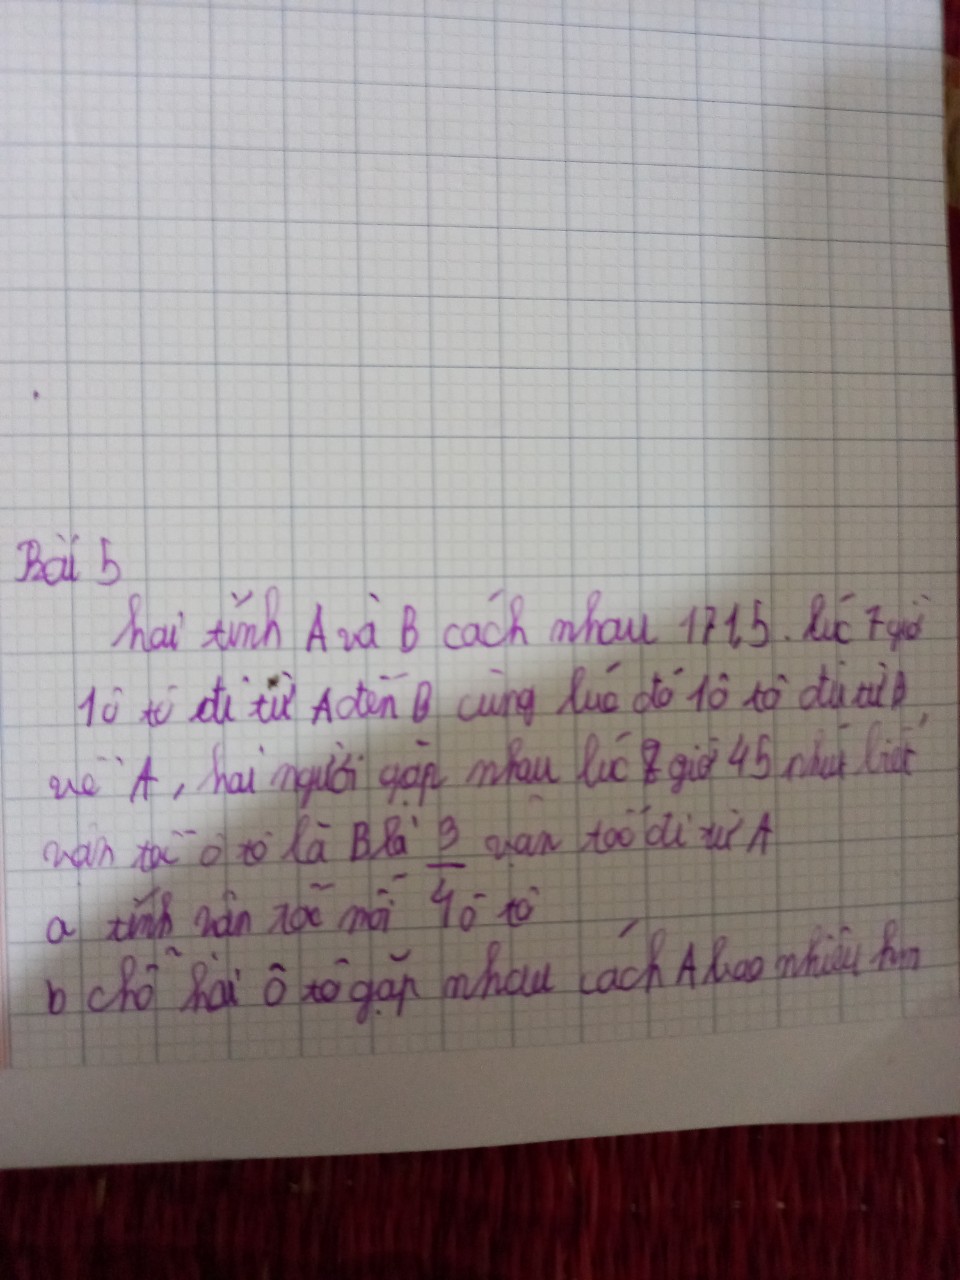 Bài 5
hai tỉnh A và B cách nhau 171,5. lúc 7 giờ
1 ô tô đi từ A đến B cùng lúc đó 1 ô tô đi từ B
về A, hai người gặp nhau lúc 8 giờ 45 phút biết
vận tốc ô tô là B là 3/4 vận tốc đi từ A
a tính vận tốc mỗi ô tô
b chỗ hai ô tô gặp nhau cách A bao nhiêu km